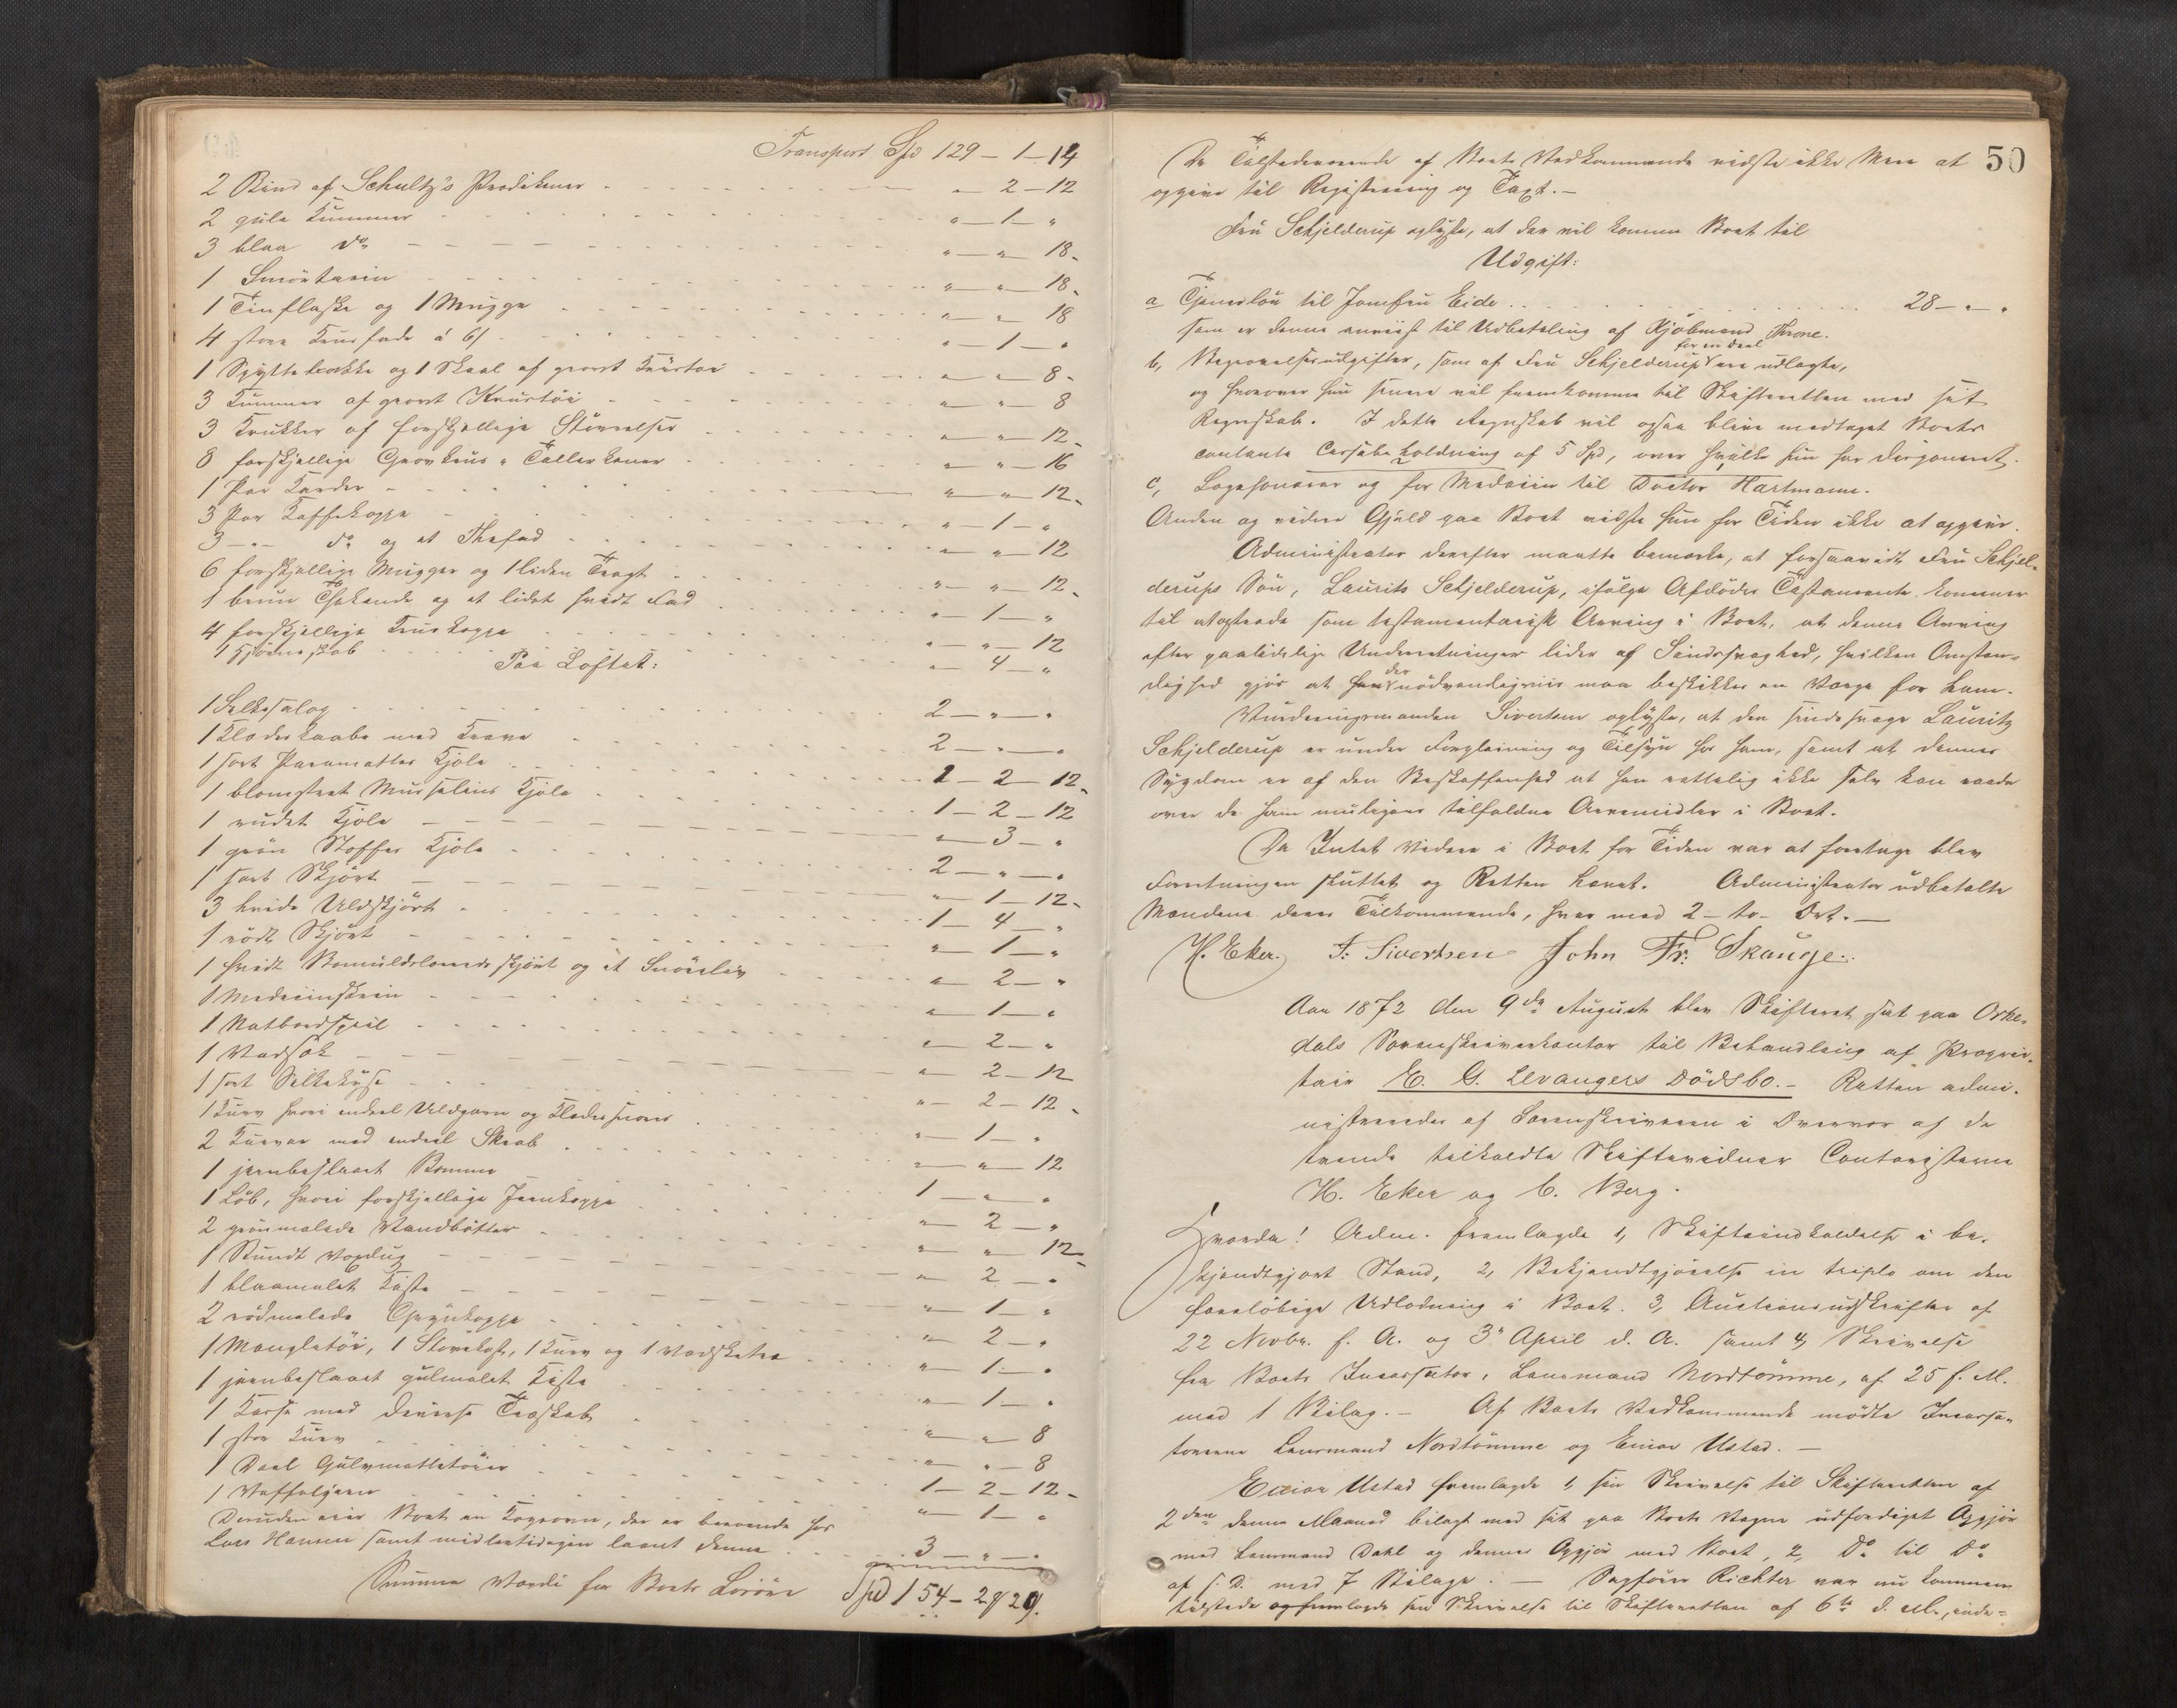 Transport Spd 129 - 1 - 14
2 Bind af Schultz's Prædikener - " 2 - 12
2 gule Kummer " - 1 - "
3 blaa do " - " - 18 -
1 Smörtarin " - " - 18 -
1 Tinflaske og 1 Mugge " - " - 18
4 store Kruusfade á 6/ " - 1 - "
1 Spyttebakke og 1 Skaal af grovt Kruustøi " - " - 8 -
3 Kummer af grovt Kruustöi " - " - 8
3 Krukker af forskjellige Störrelser " - " - 12 -
8 forskjellige Grovkruus Tallerkener " - " - 16
1 Par Karder " - " - 12 -
3 Par Kaffekopper " - 1 - "
3 - " - do og et Thefad " - " - 12
6 forskjellige Mugger og 1 liden Tragt " - " - 12 -
1 bruun Thekande og et lidet hvidt Fad " - 1 - "
4 forskjellige Kruuskopper " - " - 12
1 Hjörneskab " - 4 - "
Paa Loftet:
1 Silkesalop 2 - " - "
1 Klædeskaabe med Krave 2 - " - "
1 sort Paramattes Kjole 1 - 2 - 12 -
1 blomstret Musselins Kjole 1 - 2 - 12
1 rudet Kjole " - 3 - "
1 grön Stoffes Kjole 2 - " - "
1 sort Skjört " - 1 - 12 -
3 hvide Uldskjört 1 - 4 - "
1 rödt Skjört " - 1 - "
1 hvidt Bomuldslærreds skjört og et Snöreliv " - 2 - "
1 Medicinskrin " - 1 - "
1 Natbordspeil " - 2 - "
1 Vadsæk " - 2 - 12
1 sort Silkekyse " - 2 - 12 -
1 Kurv hvori endeel Uldgarn og Klædessnorer " - 1 - "
2 Kurver med endeel Skrab " - " - 12
1 jernbeslaaet Bomme 1 - " - "
1 Löb, hvori forskjellige Jernkopper " - 2 - "
2 grönmalede Vandbötter " - " - 12
1 Rundt Voxdug " - 2 - "
1 blaamalet Kiste " - 1 - "
2 rödmalede Grynkopper " - 2 - "
1 Mangletöi, 1 Stövekost, 1 Kurv og 1 " - 1 - "
1 jernbeslaaet gulmalet Kiste " - 1 - "
1 Kasse med diverse Træskab " - " - 8
1 stor Kurv " - " - 8
1 Deel Gulvmattetöier 1 - 2 - 12 -
1 Vaffeljern " - 1 - "
Desuden eier Boet en Kogeovn, der er beroende hos
Lars Hansen samt midlertidigen laant denne 3 - " - "
Summa Værdi for Boets Lösöre Spd 154 - 2 / 20/.
50
Da Tilstedeværende af Boets Vedkommende vidste ikke Mere at
opgive til Registrering og Taxt. -
Fru Schjelderup oplyste, at der vil komme Boet til
Udgift:
a Tjenerlön til Jomfru Eide 28 - " - "
som er denne anviist til Udbetaling af Kjöbmand Throne.
b, Begravelsesudgifter, som af Fru Schjelderup for en Deel ere udlagte,
og hvorover hun senere vil fremkomme til Skifteretten med sit
Regnskab. I dette Regnskab vil ogsaa blive medtaget Boets
contante Cassabeholdning af 5 Spd, over hvilke hun har disponeret.
c, Lægehonorar og for Medicin til Doctor Hartmann.
Anden og videre Gjæld paa Boet vidste hun for Tiden ikke at opgive.
Administrator derefter maatte bemærke, at forsaavidt Fru Schjel-
derups Sön, Laurits Schjelderup, ifölge Afdödes Testamente kommer
til at optræde som testamentarisk Arving i Boet, at denne Arving
efter paalidelige Underretninger lider af Sindssvaghed, hvilken Omstæn-
dighed gjör at der nödvendigviis maa beskikkes en Værge for ham.
Vurderingsmanden Sivertsen oplyste, at den sindssvage Lauritz
Schjelderup er under Forpleining og Tilsyn hos ham, samt at dennes
Sygdom er af den Beskaffenhed at han rettelig ikke selv kan raade
over de ham muligens tilfaldne Arvemidler i Boet.
Da Intet videre i Boet for Tiden var at foretage blev
Forretningen sluttet og Retten hævet. Administrator udbetalte
Mændene deres Tilkommende, hver med 2 - to - Ort. -
H. Eker. J. Sivertsen John Fr. Skauge.
Aar 1872 den 9de August blev Skifteret sat paa Orke-
dals Sorenskriverkontor til Behandling af Proprie-
tair E. G. Levangers Dödsbo. - Retten admi-
nistreredes af Sorenskriveren i Overvær af de
tvende tilkaldte Skiftevidner Contoristerne
H. Eker og C. Berg.
Hvorda! Adm. fremlagde 1, Skifteindkaldelse i be-
kjendtgjort Stand, 2, Bekjendtgjörelse in triplo om den
foreløbige Udlodning i Boet. 3, Auctionsudskrifter af
22 Novbr. f. A. og 3. April d. A. samt 4, Skrivelse
fra Boets Incassator, Lensmand Nordtömme, af 25 f. M.
med 1 Bilag. - Af Boets Vedkommende mødte Incassa-
torerne Lensmand Nordtömme og Einar Ustad. -
Einar Ustad fremlagde 1, sin Skrivelse til Skifteretten af
2den denne Maaned bilagt med sit paa Boets Vegne udfærdiget Opgjör
med Lensmand Dahl og dennes Opgjör med Boet, 2, Do til Do
af s. D. med 7 Bilage. - Sagförer Richter var nu kommen
tilstede og fremlagde sin Skrivelse til Skifteretten af 6te d. M., inde=